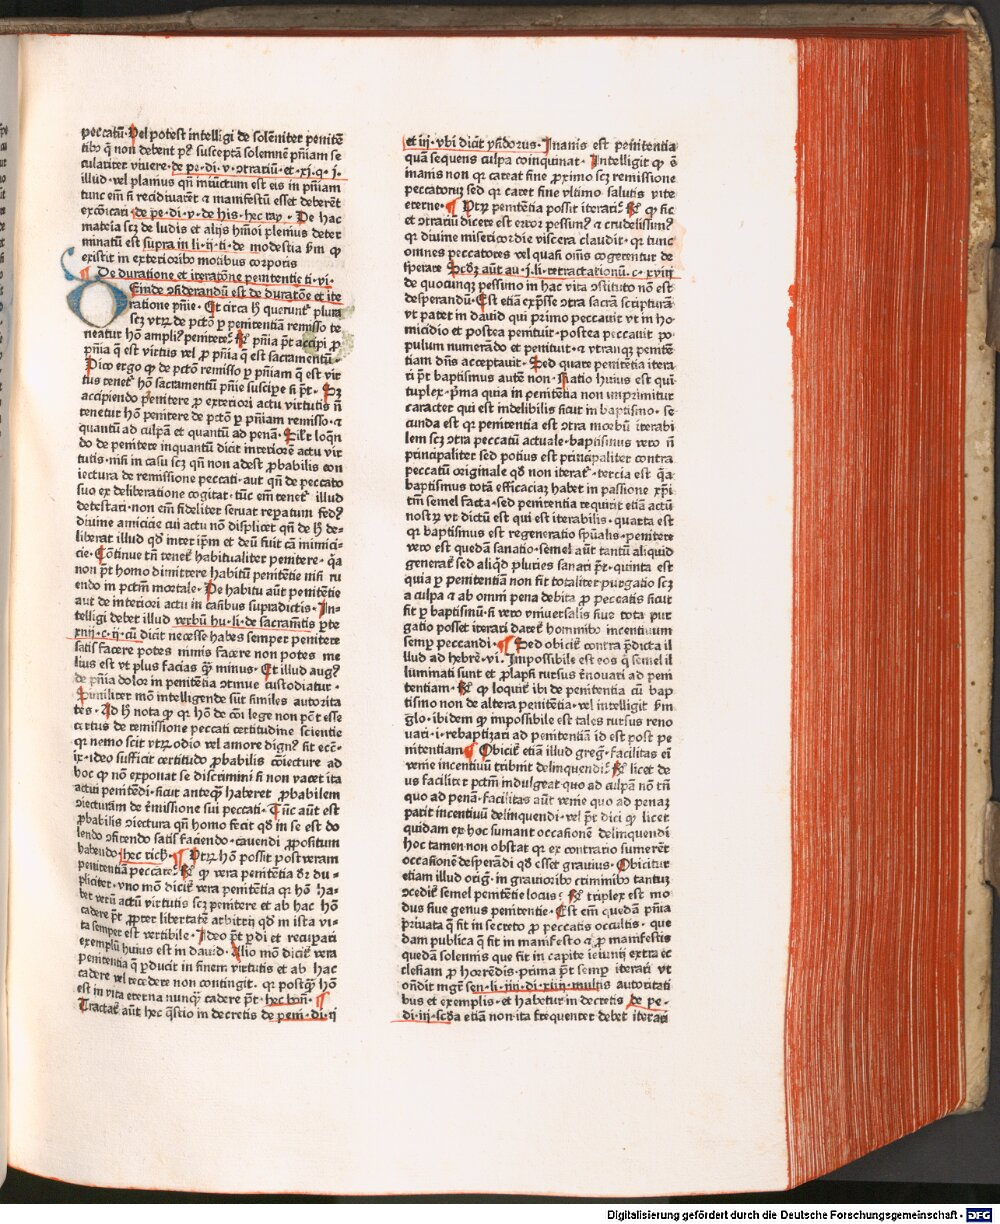 peccatū. Vel potest intelligi de solēniter penitē
tibꝰ q̄ non debent pꝰ susceptā solemnē pn̄iam se
culariter viuere. de pe. di. v. ꝯtrariū et. xj. q. j.
illud. vel planius qn̄ iniūctum est eis in pn̄iam
tunc em̄ si recidiuarēt ⁊ manifestū esset deberēt
excōicari. de pe. di. v. de his. hec ray. De hac
materia scꝫ de ludis et alijs hmōi plenius deter
minatū est supra in li. ij. ti. de modestia ẜm ꝙ
existit in exterioribꝰ motibus corporis
¶ De duratione et iteratōne penitentie ti. vi.
Einde ꝯsiderandū est de duratōne et ite
ratione pn̄ie. Et circa h̄ querunt̄ plura
scꝫ vtꝝ de pctō ꝑ penitentiā remisso te
neatur hō ampliꝰ penitere. Rͬ. pn̄ia pt̄ accipi ꝓ
pn̄ia q̄ est virtus vel ꝓ pn̄ia q̄ est sacramentū
Dico ergo ꝙ de pctō remisso ꝑ pn̄iam q̄ est vir
tus tenet̄ hō sacramentū pn̄ie suscipe si pt̄. Sꝫ
accipiendo penitere ꝓ exteriori actu virtutis n̄
tenetur hō penitere de pctō ꝑ pn̄iam remisso. ⁊
quantū ad culpā et quantū ad penā. Silr̄ loqn̄
do de penitere inquantū dicit interiorē actu vir
tutis. nisi in casu scꝫ qn̄ non adest ꝓbabilis con
iectura de remissione peccati. aut qn̄ de peccato
suo ex deliberatione cogitat. tūc em̄ tenet̄ illud
detestari. non em̄ fideliter seruat repatum fedꝰ
diuine amicicie cui actu nō displicet qn̄ de h̄ de-
liberat illud qd̄ inter ip̄m et deū fuit cā inimici-
cie. Cōtinue tn̄ tenet̄ habitualiter penitere. q̄a
non pt̄ homo dimittere habitū penitētie nisi ru
endo in pctm̄ mortale. De habitu aūt penitētie
aut de interiori actu in casibus supradictis. In-
telligi debet illud verbū hu. li. de sacram̄tis ꝑte
xiiij. c. ij. cū dicit necesse habes semper penitere
satisfacere potes nimis facere non potes me
lius est vt plus facias q̄ꝫ minus. Et illud augꝰ
de pn̄ia dolor in penitētia ꝯtinue custodiatur.
Similiter mō intelligende sūt similes autorita
tes. Ad h̄ nota ꝙ qꝛ hō de cōi lege non pōt esse
certus de remissione peccati certitudine scientie
qꝛ nemo scit vtꝝ odio vel amore dignꝰ sit ecc̄e.
ix. ideo sufficit certitudo ꝓbabilis cōiecture ad
hoc ꝙ nō exponat se discrimini si non vacet ita
actui penitēdi. sicut anteq̄ꝫ haberet ꝓbabilem
ꝯiecturam de r̄missione sui peccati. Tūc aūt est
ꝓbabilis ꝯiectura qn̄ homo fecit qd̄ in se est do
lendo ꝯfitendo satisfaciendo. cauendi ꝓpositum
habendo. hec rich̄. ¶ Vtꝝ hō possit post veram
penitentiā peccare. Rͬ. ꝙ vera penitētia dꝛ du-
pliciter. vno mō dicit̄ vera penitētia qꝛ hō ha-
bet verū actū virtutis scꝫ penitere et ab hac hō
cadere pt̄ ꝓpter libertatē arbitrij qd̄ in ista vi-
ta semper est vertibile. Ideo pt̄ ꝑdi et recupari
exemplū huius est in dauid. Alio mō dicit̄ vera
penitentia q̄ ꝑducit in finem virtutis et ab hac
cadere vel recedere non contingit. qꝛ postq̄ꝫ hō
est in vita eterna nunq̄ꝫ cadere pt̄. hec bon̄. ¶
Tractat̄ aūt hec q̄stio in decretis de peni. di. ij
et iij. vbi dicit ysidorus. Inanis est penitentia
quā sequens culpa coinquinat. Intelligit̄ ꝙ ē
inanis non qꝛ careat fine ꝓximo scꝫ remissione
peccatorꝫ sed qꝛ caret fine vltimo salutis vite
eterne. ¶ Vtꝝ penitētia possit iterari. Rͬ. ꝙ sic
et ꝯtrariū dicere est error pessimꝰ ⁊ crudelissimꝰ
qꝛ diuine misericordie viscera claudit. qꝛ tunc
omnes peccatores vel quasi oīns cogerentur de
sperare Scd̄ꝫ aūt au. j. li. retractationū. c. xviij
de quocunqꝫ pessimo in hac vita ꝯstituto nō est
desperandū. Est etiā exp̄sse ꝯtra sacrā scripturā
vt patet in dauid qui primo peccauit vt in ho-
micidio et postea penituit. postea peccauit po
pulum numerādo et penituit. ⁊ vtranqꝫ penitē
tiam dn̄s acceptauit. Sed quare penitētia itera
ri pt̄ baptismus autē non. Ratio huius est quī
tuplex. p̄ma quia in penitētia non imprimitur
caracter qui est indelibilis sicut in baptismo. se
cunda est qꝛ penitentia est ꝯtra morbū iterabi
lem scꝫ ꝯtra peccatū actuale. baptismus vero n̄
principaliter sed potius est principaliter contra
peccatū originale qd̄ non iterat̄. tercia est q̄a
baptismus totā efficaciaꝫ habet in passione xp̄i
tm̄ semel facta. sed penitentia requirit etiā actū
nostꝝ vt dictū est qui est iterabilis. quarta est
qꝛ baptismus est regeneratio spūalis. penitere
vero est quedā sanatio. semel aūt tantū aliquid
generat̄ sed aliqd̄ pluries sanari pt̄. quinta est
quia ꝑ penitentiā non fit totaliter purgatio scꝫ
a culpa ⁊ ab omni pena debita ꝓ peccatis sicut
fit ꝑ baptismū. si vero vniuersalis siue tota pur
gatio posset iterari daret̄ hominibꝰ incentiuum
semꝑ peccandi. ¶ Sed obicit̄ contra p̄dicta il
lud ad hebre. vi. Impossibile est eos q̄ semel il
luminati sunt et ꝓlapsi rursus r̄nouari ad peni
tentiam. Rͬ. ꝙ loquit̄ ibi de penitentia cū bap
tismo non de altera penitētia. vel intelligit̄ ẜm
glo. ibidem ꝙ impossibile est tales rursus reno
uari. i. rebaptizari ad penitentiā id est post pe
nitentiam ¶ Obicit̄ etiā illud greg. facilitas eī
venie incentiuū tribuit delinquendi. Rͬ. licet de
us faciliter pctm̄ indulgeat quo ad culpā nō tn̄
quo ad penā. facilitas aūt venie quo ad penaꝫ
parit incentiuū delinquendi. vel pt̄ dici ꝙ licet
quidam ex hoc sumant occasionē delinquendi
hoc tamen non obstat qꝛ ex contrario sumerēt
occasionē desperādi qd̄ esset grauius. Obicitur
etiam illud orig. in grauioribꝰ criminibꝰ tantuꝫ
ꝯcedit̄ semel penitētie locus. Rͬ. triplex est mo
dus siue genus penitentie. Est em̄ quedā pn̄ia
priuata q̄ fit in secreto ꝓ peccatis occultis. que
dam publica q̄ fit in manifesto ⁊ ꝓ manifestis
quedā solennis que fit in capite ieiunij extra ec
clesiam ꝓ horrēdis. prima pt̄ semꝑ iterari vt
on̄dit mgr̄ sen. li. iiij. di. xiiij. multis autoritati
bus et exemplis. et habetur in decretis de pe.
di. iij. scd̄a etiā non ita frequenter debet iterari
Digitalisierung gefördert durch die Deutsche Forschungsgemeinschaft - DFG